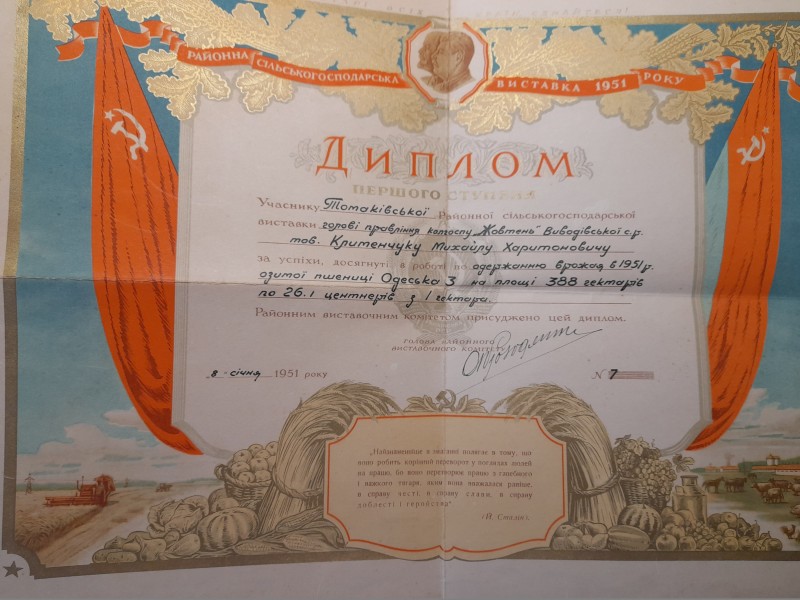 РАЙОННА СІЛЬСЬКОГОСПОДАРСЬКА ВИСТАВКА 1951 РОКУ
ДИПЛОМ
ПЕРШОГО СТУПЕНЯ
Учаснику Томаківської Районної сільськогосподарської
виставки голові правління колгоспу "Жовтень" Виводівської с.р.
тов. Клименчуку Михайлу Харитоновичу
за успіхи, досягнуті в роботі по одержанню врожая в 1951 р.
озимої пшениці Одеська 3 на площі 388 гектарів
по 26.1 центнерів з 1 гектара.
Районним виставочним комітетом присуджено цей диплом.
ГОЛОВА РАЙОННОГО
ВИСТАВОЧНОГО КОМІТЕТУ
8 - січня 1951 року
№ 7
„Найзнаменніше в змаганні полягає в тому, що
воно робить корінний переворот у поглядах людей
на працю, бо воно перетворює працю з ганебного
і важкого тягаря, яким вона вважалася раніше,
в справу честі, в справу слави, в справу
доблесті і геройства"
(Й. Сталін).